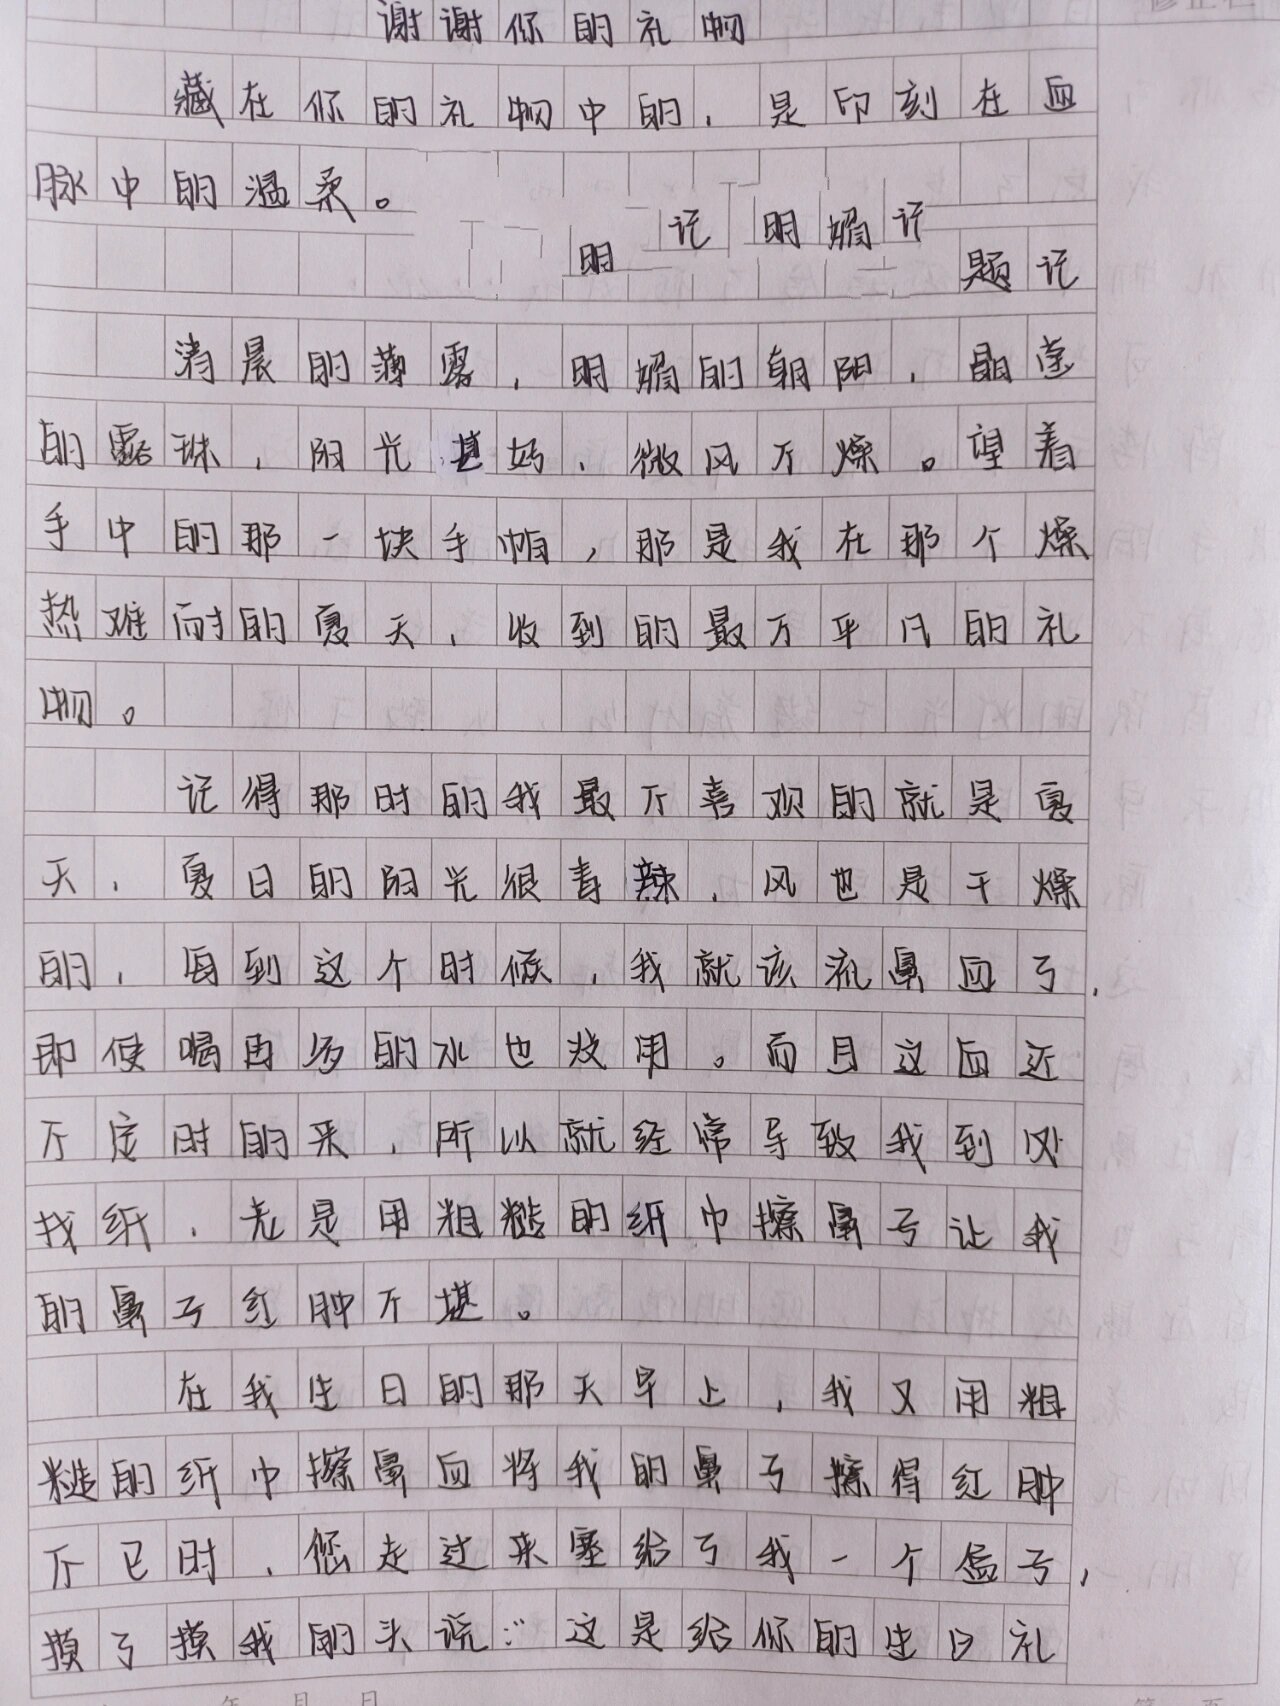 谢谢你的礼物
藏在你的礼物中的，是印刻在血
脉中的温柔。
记 明媚记
明
题记
清晨的薄雾，明媚的朝阳，晶莹
的露珠，阳光甚好，微风不燥。望着
手中的那一块手帕，那是我在那个燥
热难耐的夏天，收到的最不平凡的礼
物。
记得那时的我最不喜欢的就是夏
天，夏日的阳光很毒辣，风也是干燥
的，每到这个时候，我就该流鼻血了，
即使喝再多的水也没用。而且这血还
不定时的来，所以就经常导致我到处
找纸，老是用粗糙的纸巾擦鼻子让我
的鼻子红肿不堪。
在我生日的那天早上，我又用粗
糙的纸巾擦鼻血将我的鼻子擦得红肿
不已时，您走过来塞给了我一个盒子，
摸了摸我的头说："这是给你的生日礼
年 月 日